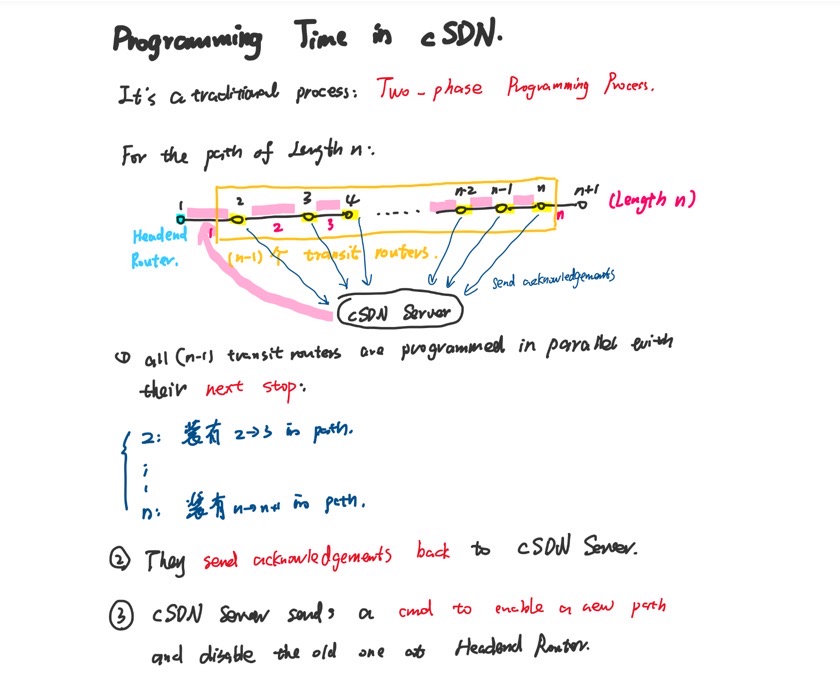 Programming Time in cSDN.
It's a traditional process: Two-phase Programming Process.
For the path of Length n:
1 2 3 4 ..... n-2 n-1 n n+1 (Length n)
1 2 3 n
Headend
Router.
(n-1) 个 transit routers.
send acknowledgements
cSDN Server
① all (n-1) transit routers are programmed in parallel with
their next stop:
2: 装有 2→3 in path.
n: 装有 n→n+1 in path.
② They send acknowledgements back to cSDN Server.
③ cSDN Server sends a cmd to enable a new path
and disable the old one at Headend Router.